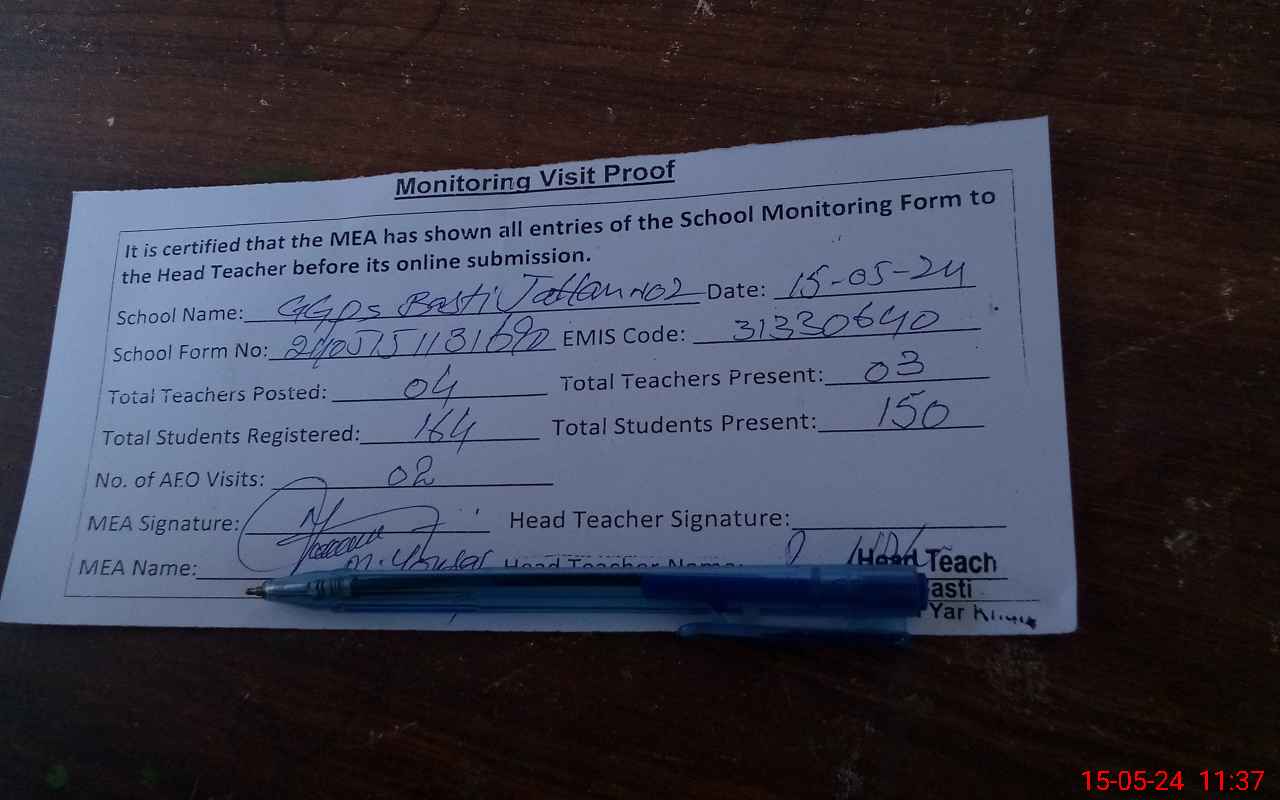 Monitoring Visit Proof
It is certified that the MEA has shown all entries of the School Monitoring Form to
the Head Teacher before its online submission.
School Name: GGPS Basti Jattan NO2 Date: 15-05-24
School Form No: EMIS Code: 31330640
Total Teachers Posted: 04 Total Teachers Present: 03
Total Students Registered: 164 Total Students Present: 150
No. of AEO Visits: 02
MEA Signature: Head Teacher Signature:
MEA Name: Head Teacher Name:
Head Teach
asti
Yar
15-05-24 11:37